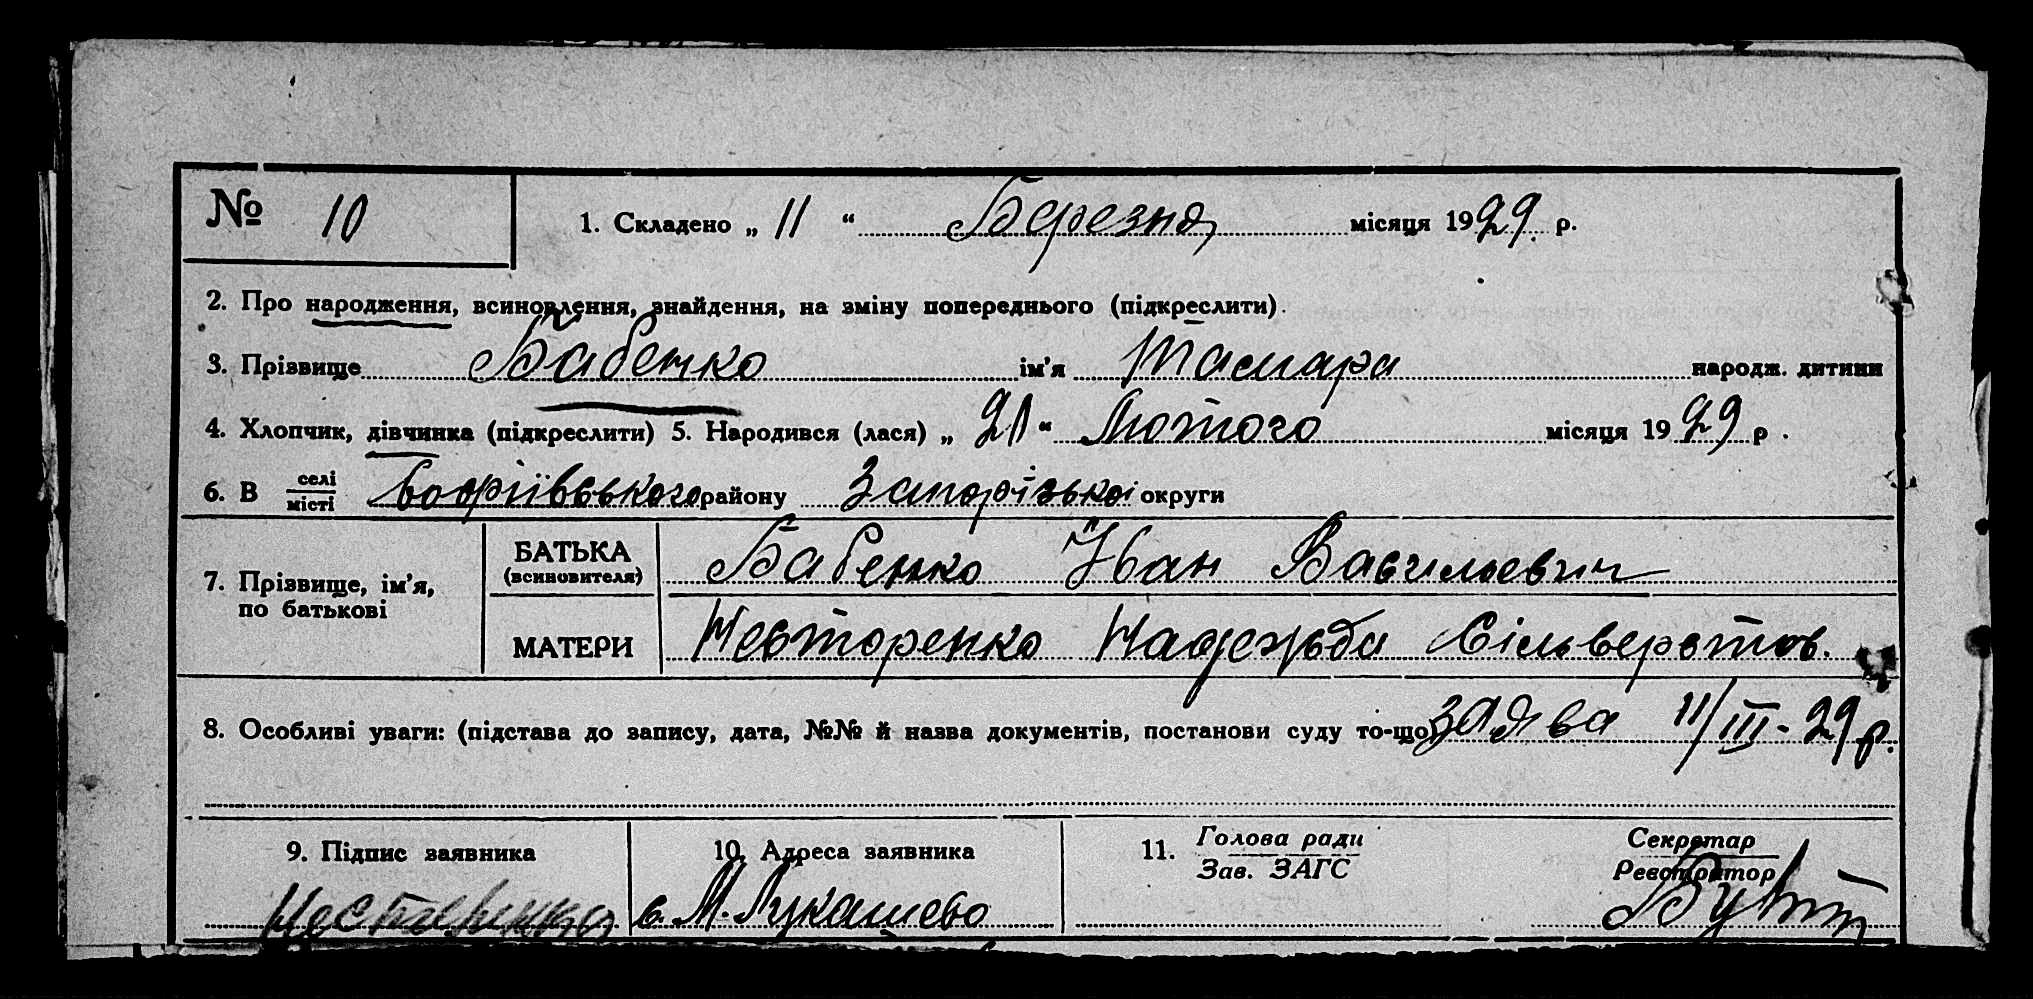 № 10 1. Складено „ 11 “ Березня місяця 1929. р.
2. Про народження, всиновлення, знайдення, на зміну попереднього (підкреслити).
3. Прізвище Бабенко ім'я Тамара народж. дитини
4. Хлопчик, дівчинка (підкреслити) 5. Народився (лася) „ 21 “ Лютого місяця 1929 р.
6. В селі місті Софіївського району Запорізької округи
7. Прізвище, ім'я, по батькові
БАТЬКА (всиновителя) Бабенко Іван Васильевич
МАТЕРИ Несторенко Надежда Сільверстов.
8. Особливі уваги: (підстава до запису, дата, №№ й назва документів, постанови суду то-що) заява 11/III-29 р.
9. Підпис заявника 10. Адреса заявника 11. Голова ради Зав. ЗАГС Секретар Реєстратор
с. М. Лукашево